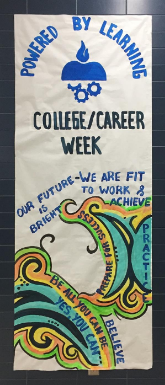 POWERED BY LEARNING
COLLEGE/CAREER
WEEK
OUR FUTURE IS BRIGHT
WE ARE FIT
TO WORK &
ACHIEVE
PREPARE FOR SUCCESS
PRACTI
BE ALL YOU CAN BE
YES YOU CAN
BELIEVE